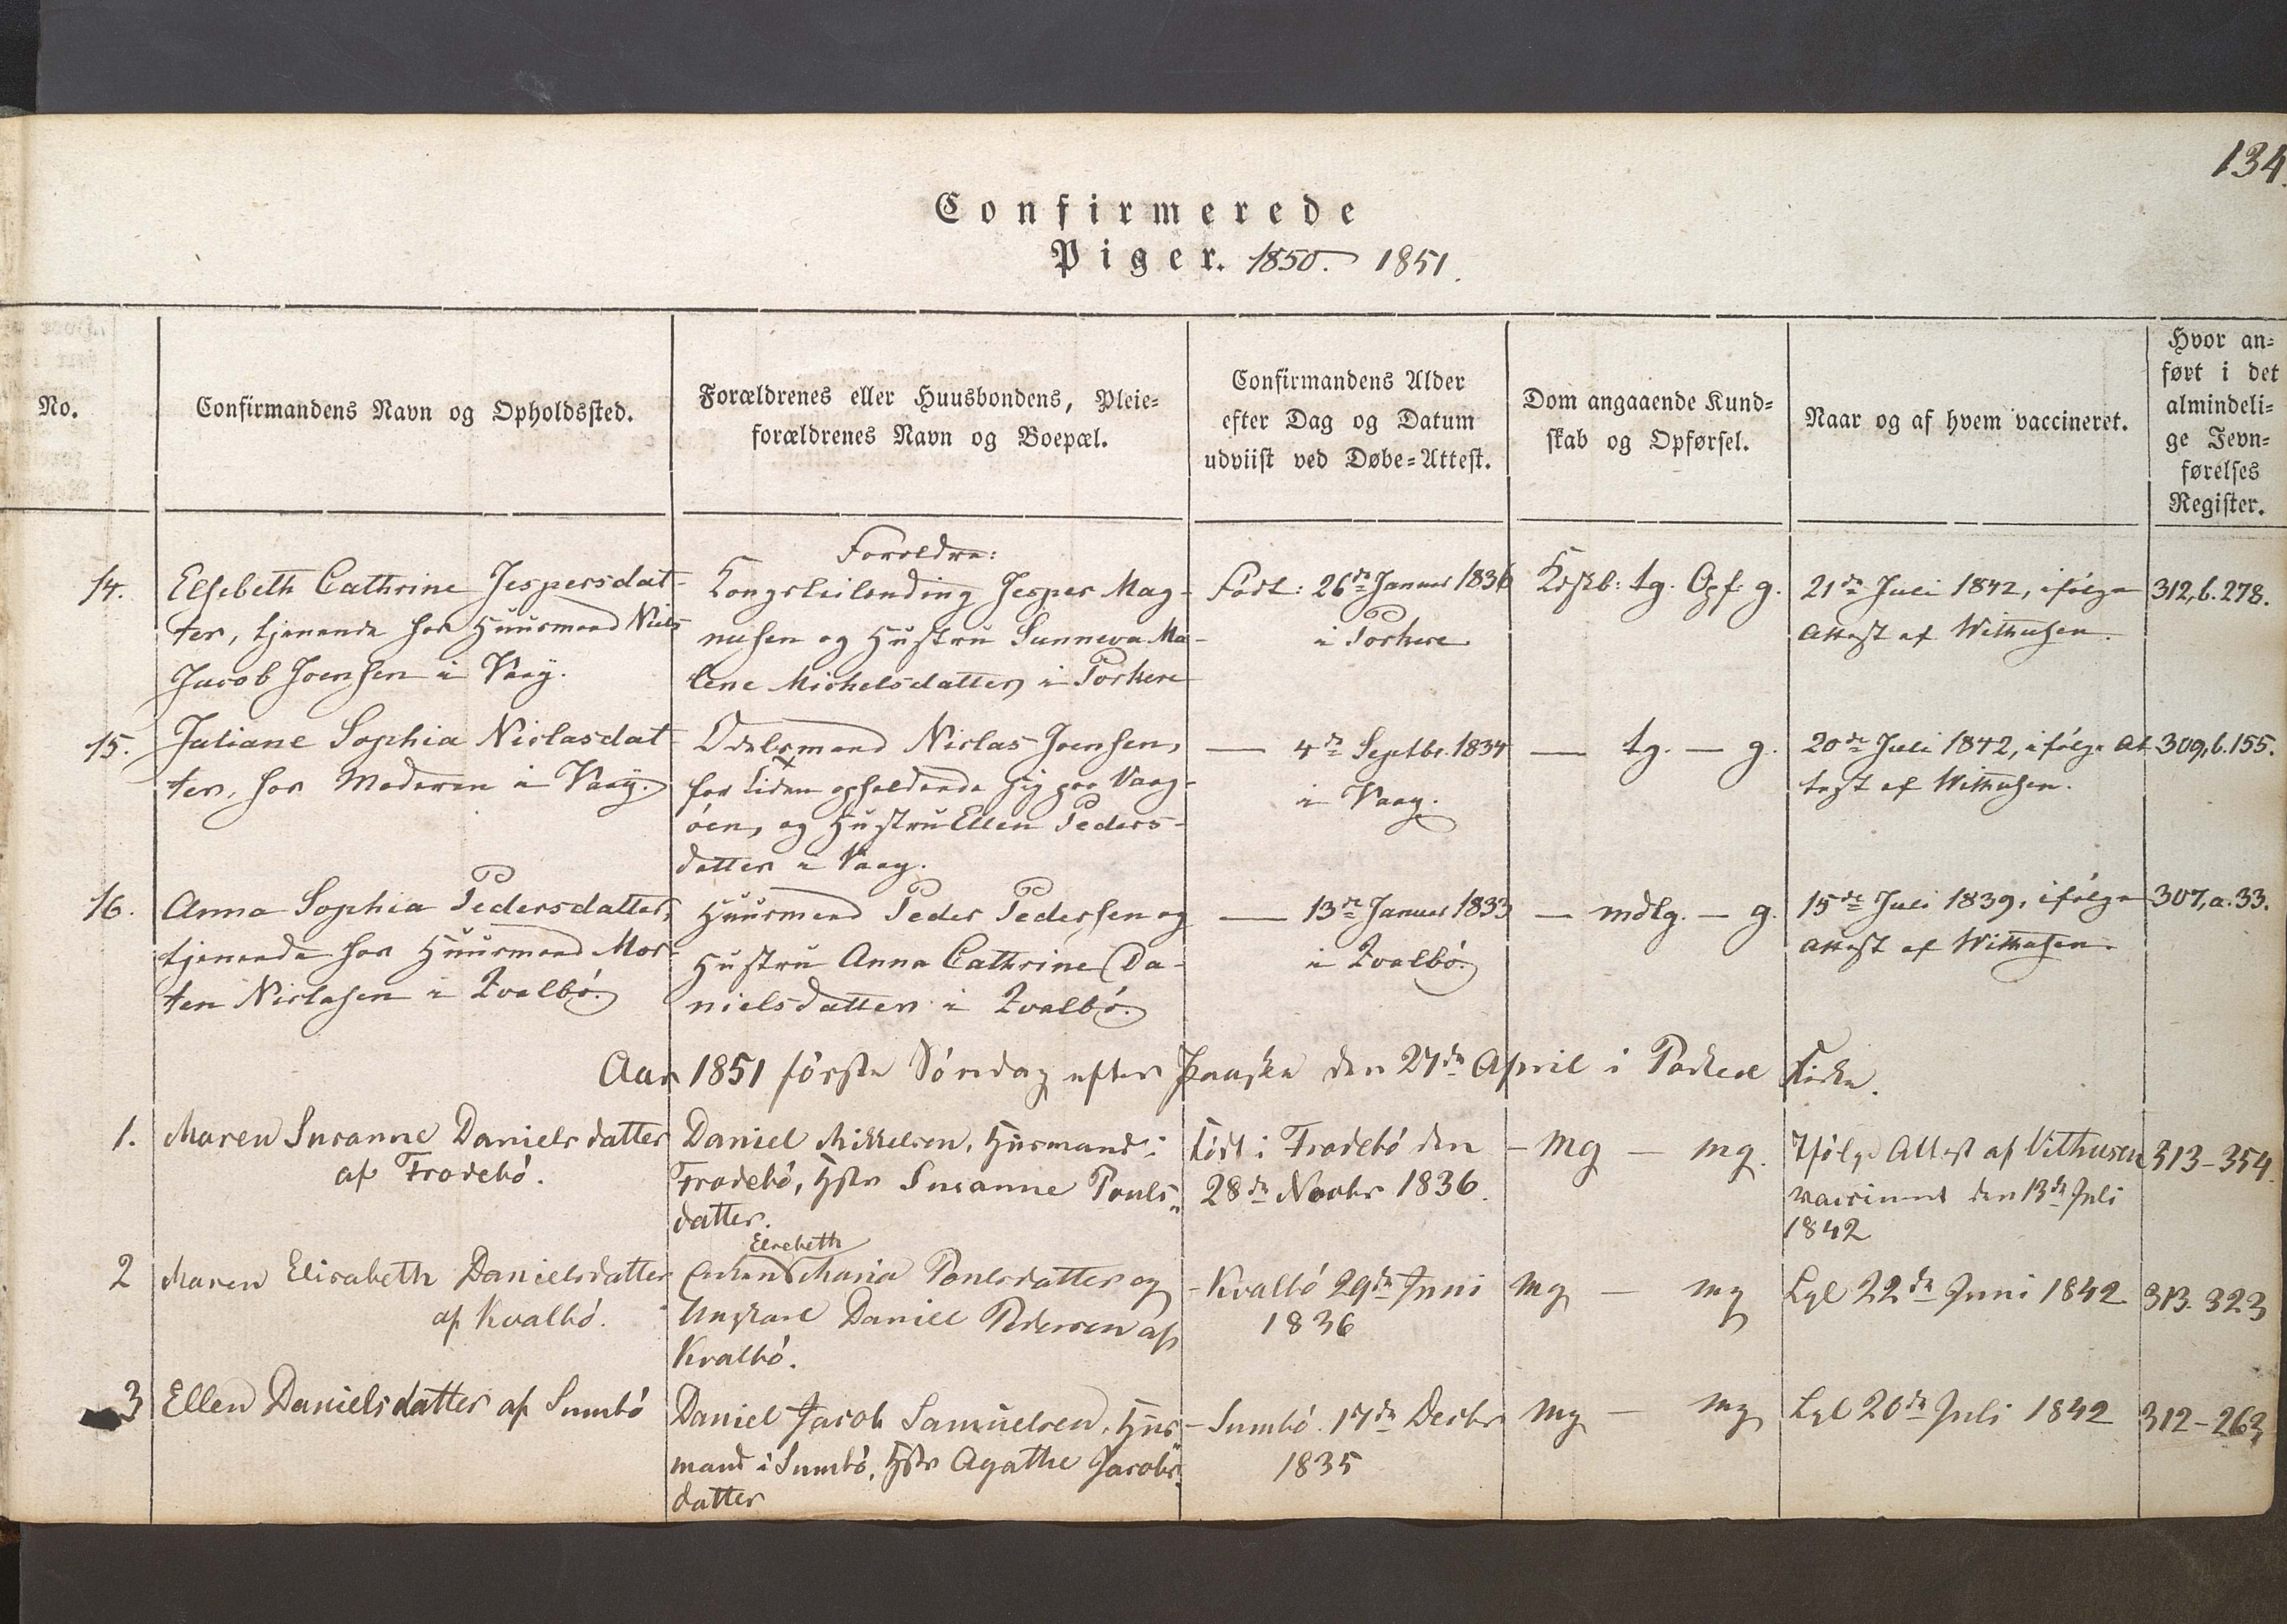 134.
Confirmerede
Piger. 1850. 1851.
No.
Confirmandens Navn og Opholdssted.
Forældrenes eller Huusbondens, Pleie=
forældrenes Navn og Boepæl.
Confirmandens Alder
efter Dag og Datum
udviist ved Døbe=Attest.
Dom angaaende Kund=
skab og Opførsel.
Naar og af hvem vaccineret.
Hvor an=
ført i det
almindeli=
ge Jevn=
førelses
Register.
14.
Elsebeth Cathrine Jespersdat-
ter, tjenende hos Huusmand Niels
Jacob Joensen i Vaag.
Foreldre:
Kongsleilending Jesper Mag-
nusen og Hustru Sunneva Ma-
lene Michelsdatter i Porkere
Født: 26de Januar 1836
i Porkere
Kdskb: tg. Opf: g.
21de Juli 1842, ifølge
Attest af Withusen.
312, b. 278.
15.
Juliane Sophia Niclasdat
ter, hos Moderen i Vaag.
Odelsmand Niclas Joensen,
for tiden opholdende sig paa Vaag-
øen, og Hustru Ellen Peders-
datter i Vaag.
— 4de Septbr. 1834
i Vaag.
— tg. — g.
20de Juli 1842, ifølge At
test af Withusen.
309, b. 155.
16.
Anna Sophia Pedersdatter,
tjenende hos Huusmand Mor-
ten Niclasen i Qvalbø.
Huusmand Peder Pedersen og
Hustru Anna Cathrine Da-
nielsdatter i Qvalbø.
— 13de Januar 1833
i Qvalbø.
— mdlg. — g.
15de Juli 1839, ifølge
Attest af Withusen.
307, a. 33.
Aar 1851 første Søndag efter Paaske den 27de April i Porkere Kirke.
1.
Maren Susanne Danielsdatter
af Frodebø.
Daniel Mikkelsen, Husmand i
Frodebø, Hstr Susanne Pouls"
datter.
Født i Frodebø den
28de Novbr 1836.
- mg — mg.
Ifølge Attest af Vithusen
vaccineret den 13de Juli
1842
313-354.
2
Maren Elisabeth Danielsdatter
af Kvalbø.
Elsebeth
Maria Poulsdatter og
Ungkarl Daniel Pedersen af
Kvalbø.
- Kvalbø 29de Juni
1836
mg — mg
Lgl 22de Juni 1842.
313. 323
3
Ellen Danielsdatter af Sumbø
Daniel Jacob Samuelsen, Hus"
mand i Sumbø, Hstr Agathe Jacobs"
datter
- Sumbø. 17de Decbr
1835
mg — mg
Lgl 20de Juli 1842
312-263